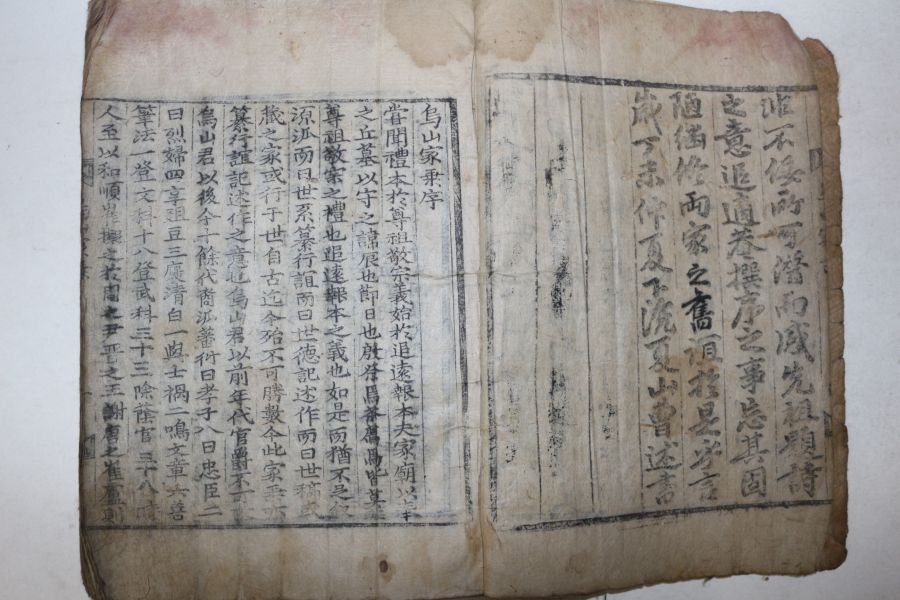 非不佞所可潛而感先祖題詩
之意追適菴撰序之事忘其固
陋備修兩家之舊誼於是乎言
歲丁未仲夏下浣夏山曺述書
烏山家乘序
嘗聞禮本於尊祖敬宗義始於追遠報本夫家廟以
之丘墓以守之諱辰也節日也
尊祖敬宗之禮也追遠報本之義也如是而猶不足
源派而曰世系纂行誼而曰世德記述作而曰世稿或
藏之家或行于世自古迄今殆不可勝數今此家乘
纂行誼記述作之意也烏山君以前年代官爵不
烏山君以後今十餘代裔派蕃衍曰孝子八曰忠臣二
曰烈婦四享俎豆三廢淸白一與士禍二鳴文章六善
筆法一登文科十八登武科三十三除蔭官三十八
人至以和順崔
之尹晋之王謝唐之崔盧則